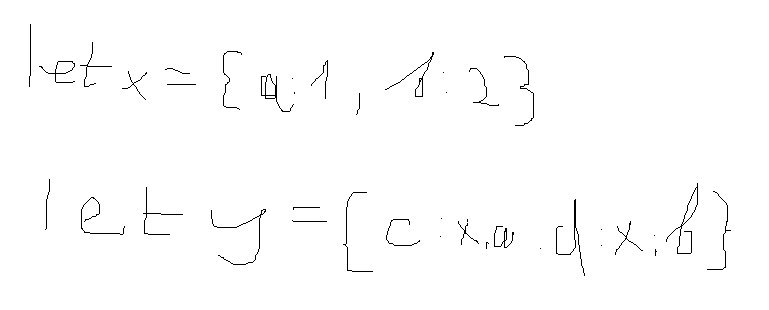 let x = {a:1, b:2}
let y = {c:x.a, d:x.b}